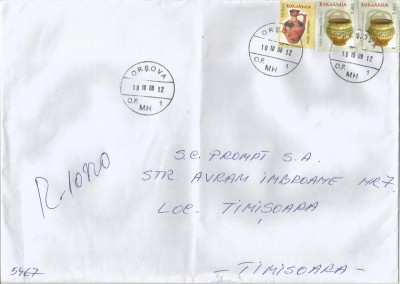 ROMÂNIA ROMÂNIA ROMÂNIA
ORȘOVA
18 10 08 12
O.P. 1
MH
ORȘOVA
18 10 08 12
O.P. 1
MH
ORȘOVA
18 10 08 12
O.P. 1
MH
R-1090
S.C. PROMPT S.A.
STR AVRAM IMBROANE NR 7
LOC. TIMIȘOARA
5467
- TIMIȘOARA -